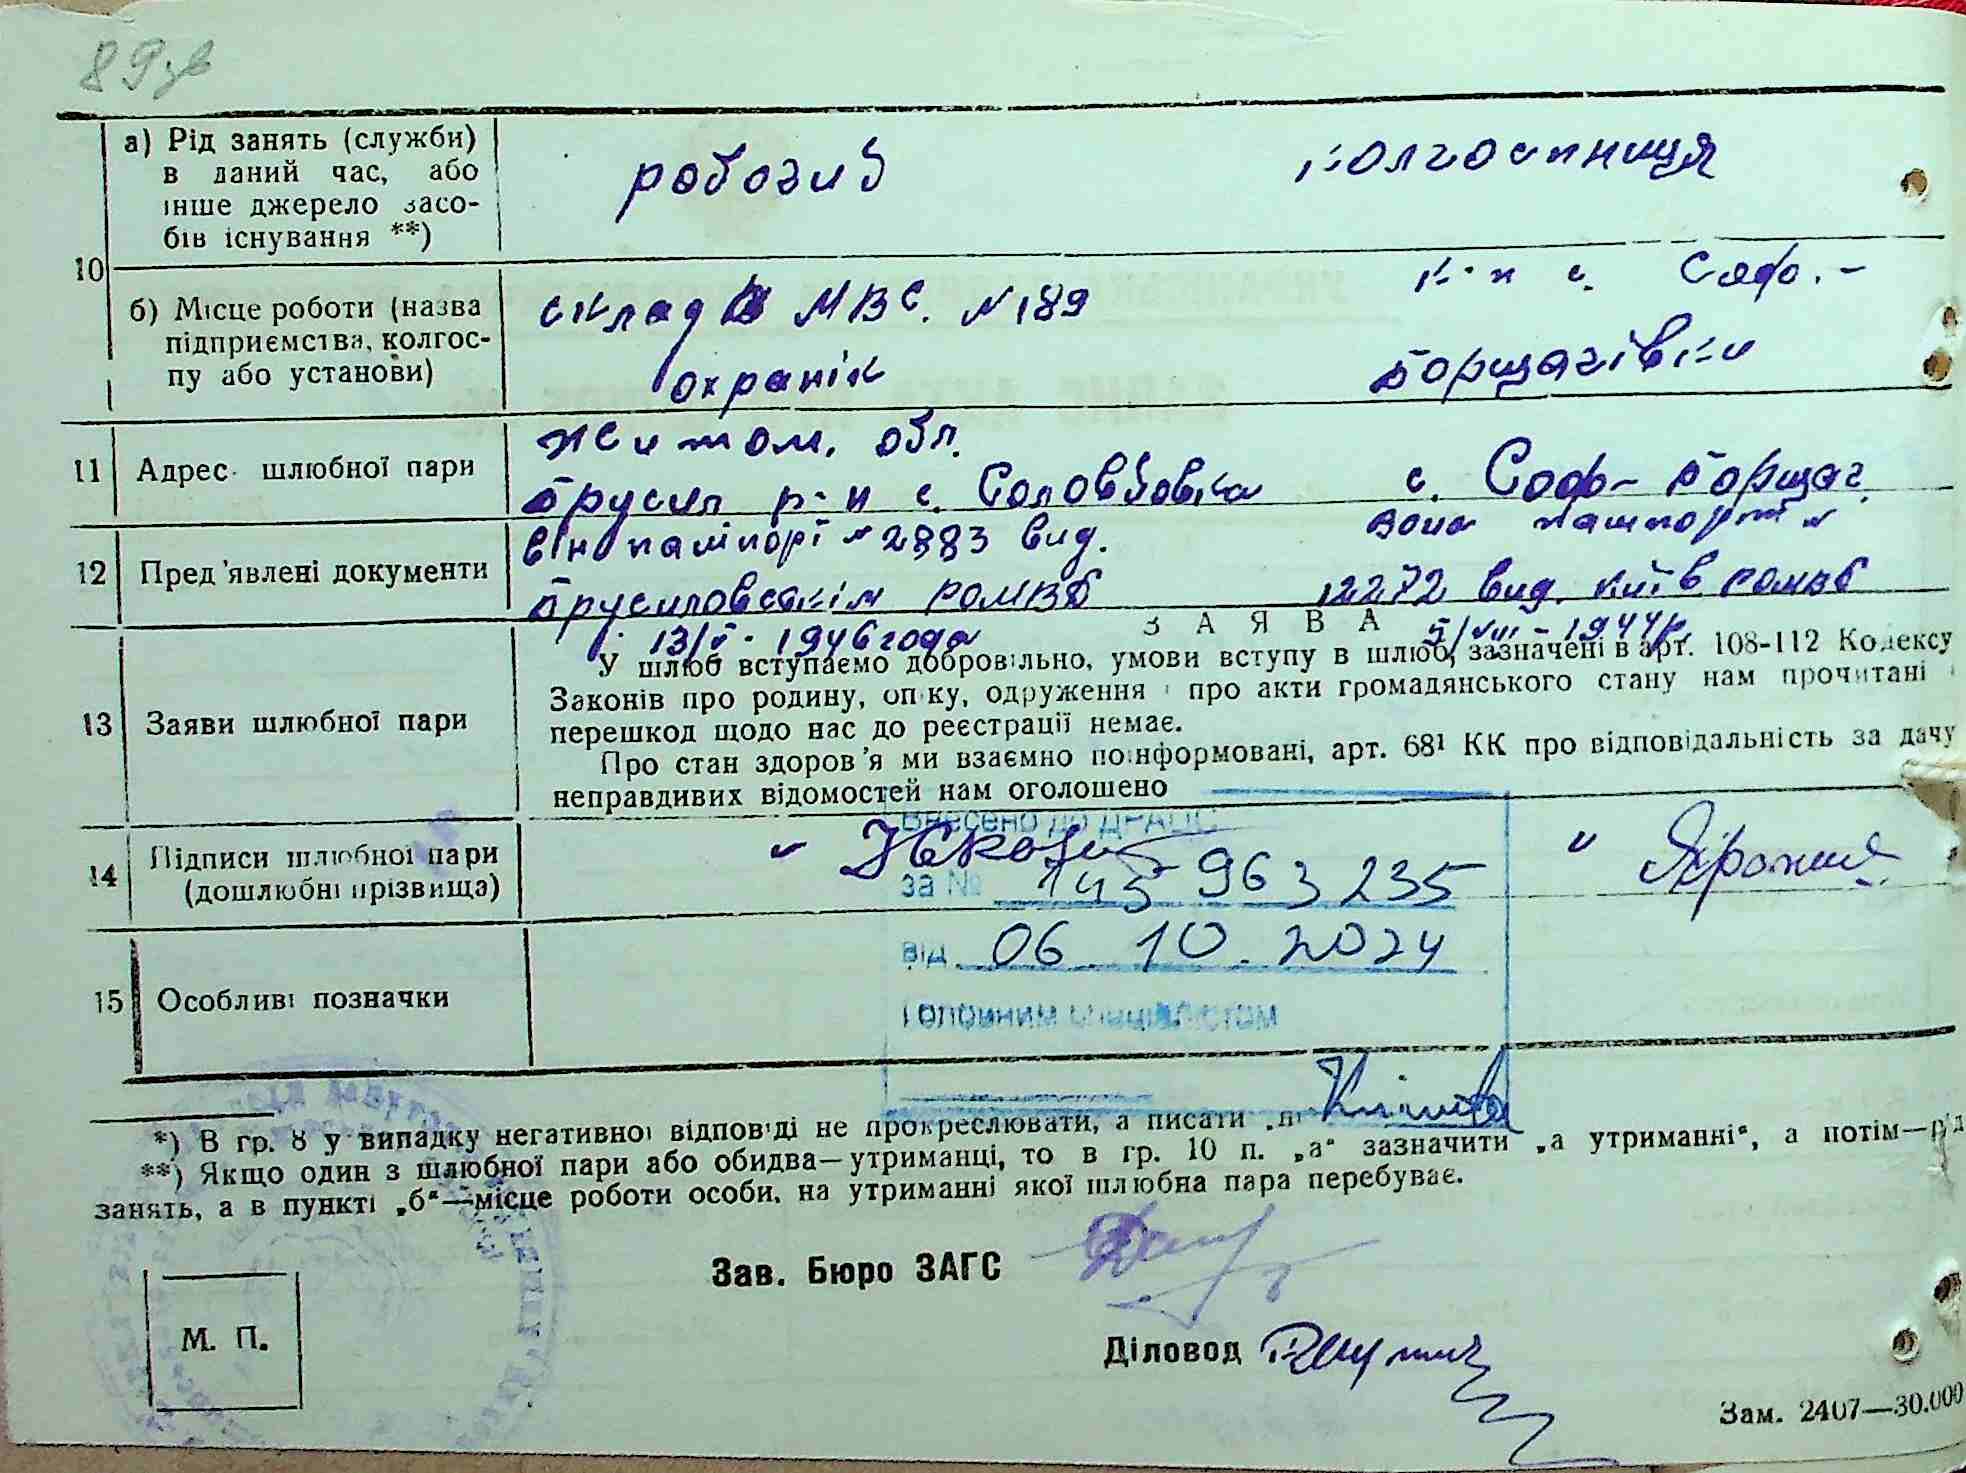 89зв
а) Рід занять (служби) в даний час, або інше джерело засобів існування **)
робочий
колгоспниця
10
б) Місце роботи (назва підприємства, колгоспу або установи)
склад МВС. №189 охранік
к-п с. Софо.-Борщагівки
11 Адрес шлюбної пари
Житом. обл.
Брусил р-н с. Соловʼовка
с. Соф-Борщаг.
12 Пред'явлені документи
він паспорт №2883 вид.
Брусиловским РОМВБ
13/V- 1946 года
вона пашпорт №
12272 вид. Київ. РОМВБ
5/VIII-1944р
ЗАЯВА
13 Заяви шлюбної пари
У шлюб вступаємо добровільно, умови вступу в шлюб, зазначені в арт. 108-112 Кодексу
Законів про родину, опіку, одруження і про акти громадянського стану нам прочитані і
перешкод щодо нас до реєстрації немає.
Про стан здоров'я ми взаємно поінформовані, арт. 68¹ КК про відповідальність за дачу
неправдивих відомостей нам оголошено
Внесено до ДРАЦС
14 Підписи шлюбної пари
(дошлюбні прізвища)
за № 145 963 235
від 06.10.2024
15 Особливі позначки
Головним спеціалістом
*) В гр. 8 у випадку негативної відповіді не прокреслювати, а писати „н
**) Якщо один з шлюбної пари або обидва—утриманці, то в гр. 10 п. „а“ зазначити „а утриманні“, а потім—рід
занять, а в пункті „б“—місце роботи особи, на утриманні якої шлюбна пара перебуває.
Зав. Бюро ЗАГС
М. П.
Діловод
Зам. 2407—30.000